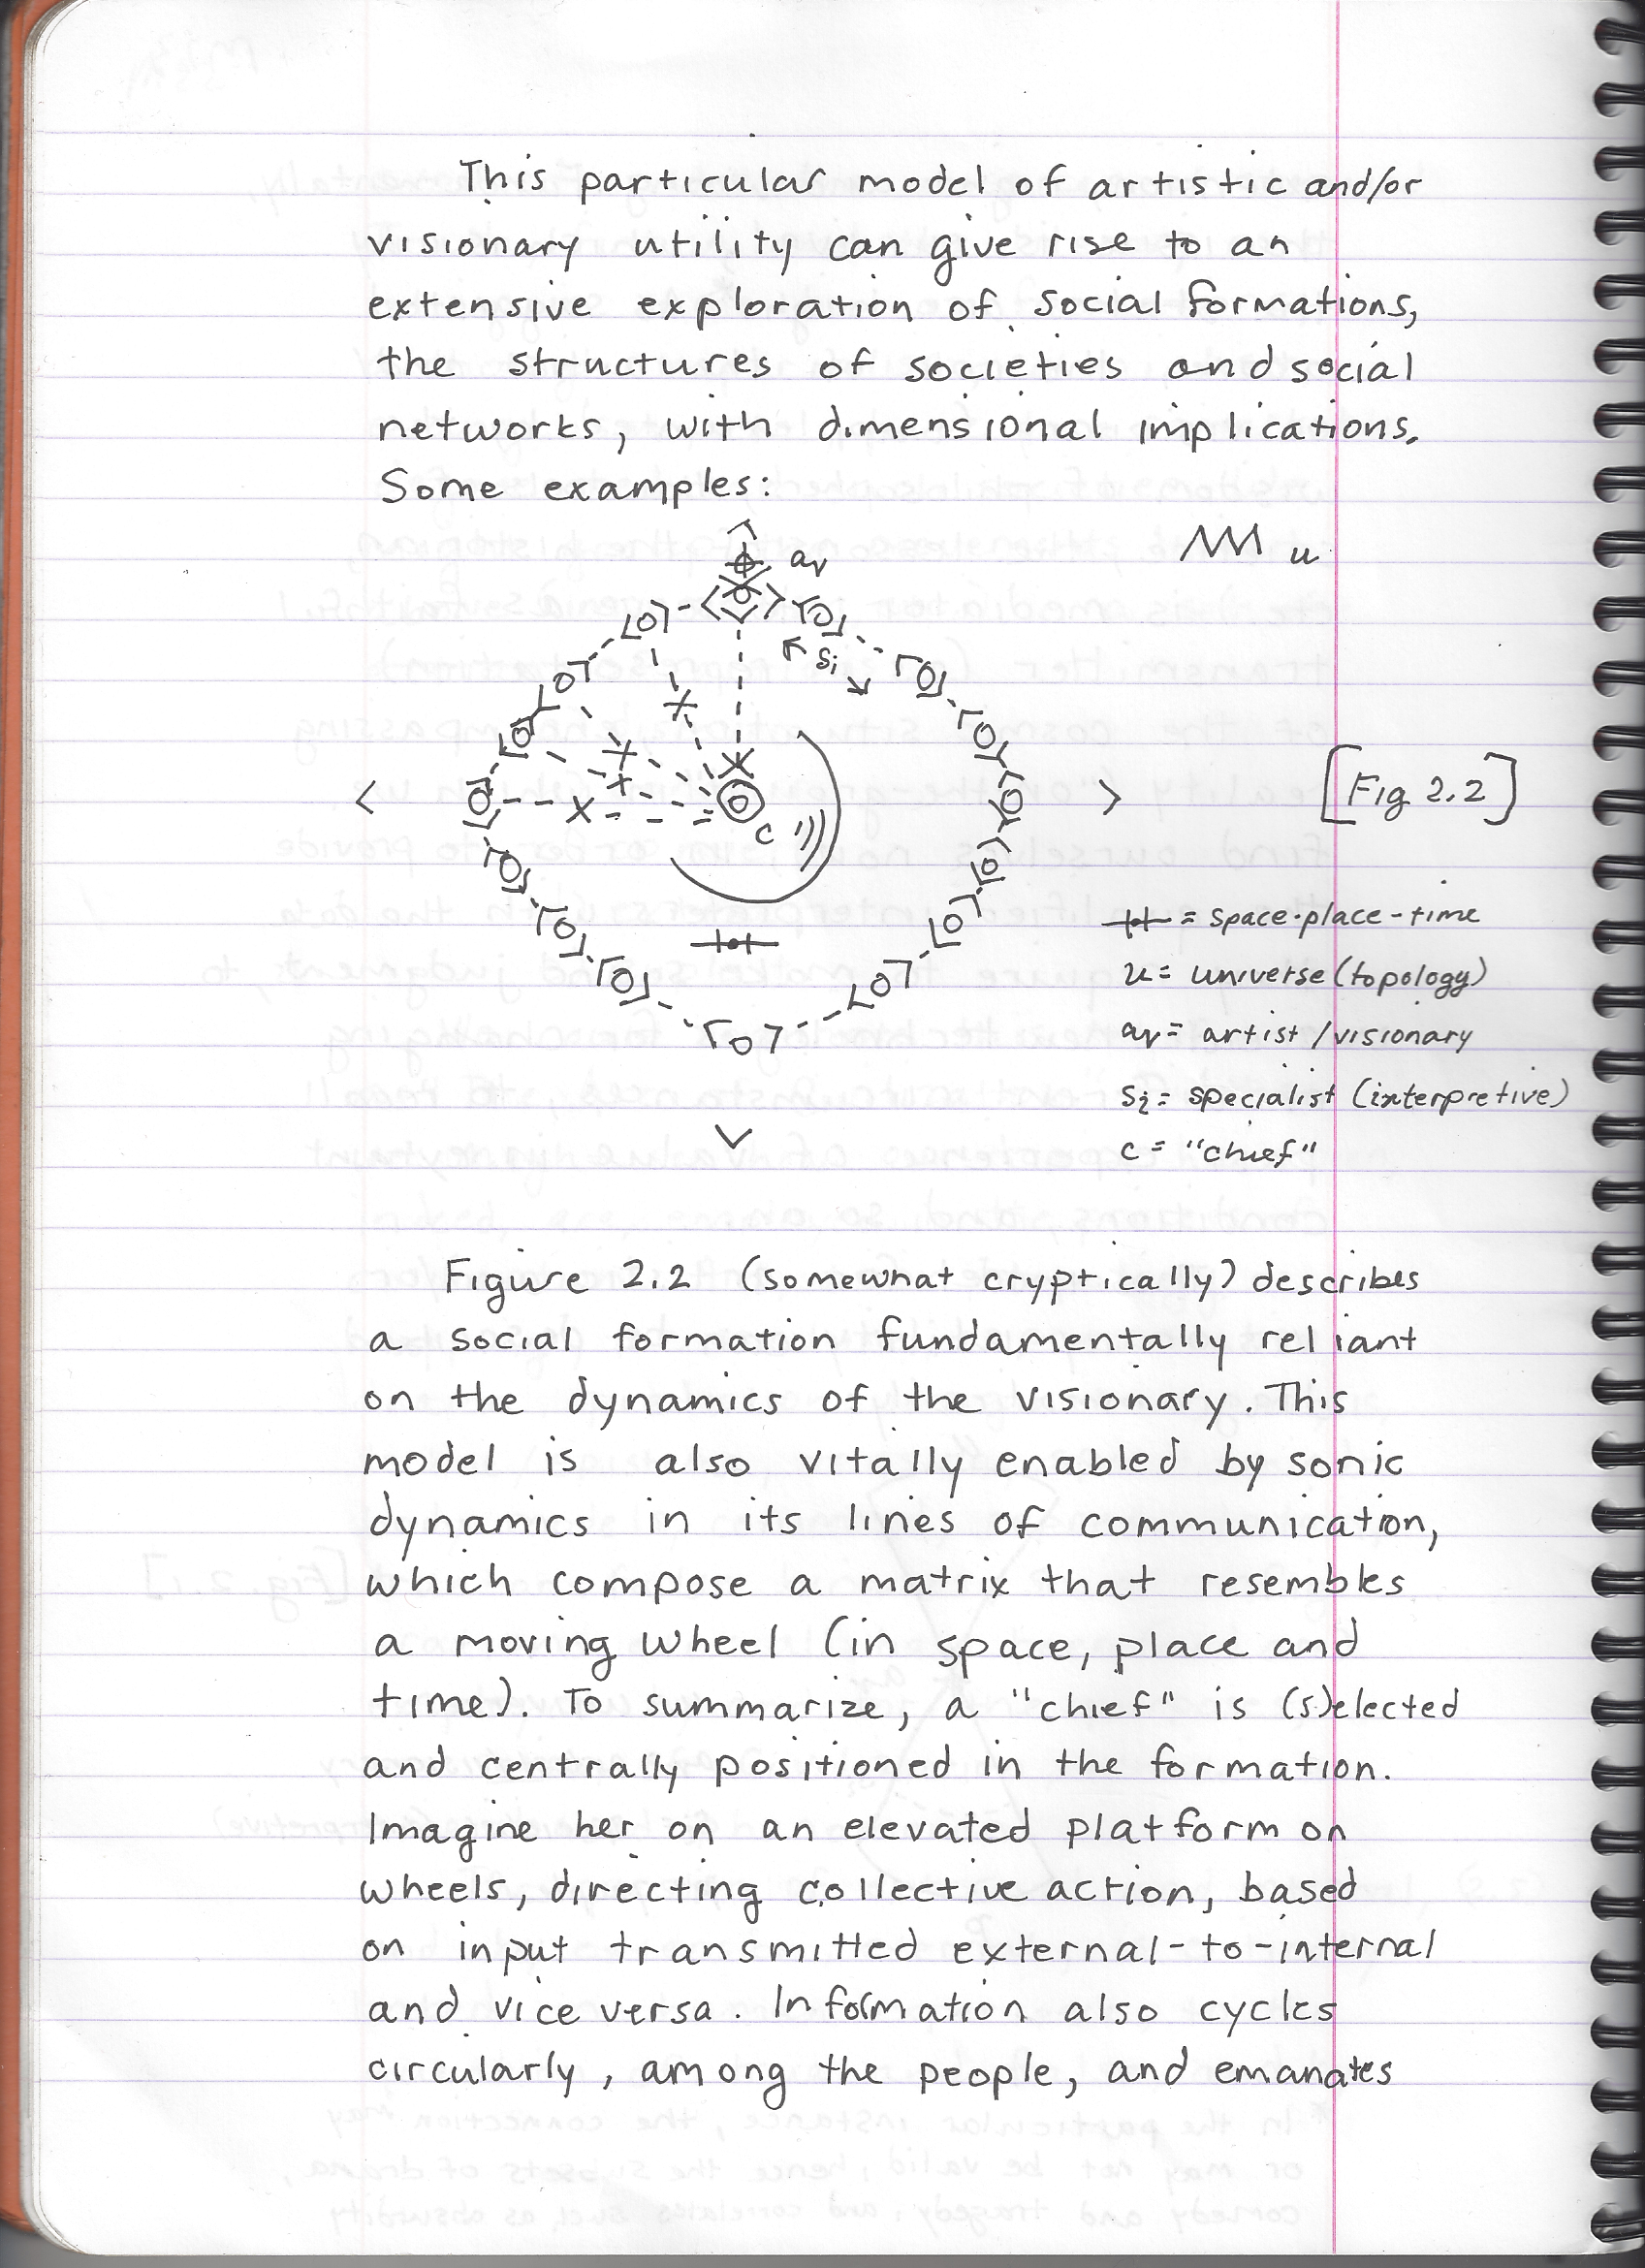 This particular model of artistic and/or
visionary utility can give rise to an
extensive exploration of social formations,
the structures of societies and social
networks, with dimensional implications.
Some examples:
u
av
si
[Fig 2.2]
c
= space-place-time
u = universe (topology)
av = artist / visionary
si = specialist (interpretive)
c = "chief"
Figure 2.2 (somewhat cryptically) describes
a social formation fundamentally reliant
on the dynamics of the visionary. This
model is also vitally enabled by sonic
dynamics in its lines of communication,
which compose a matrix that resembles
a moving wheel (in space, place and
time). To summarize, a "chief" is (s)elected
and centrally positioned in the formation.
Imagine her on an elevated platform on
wheels, directing collective action, based
on input transmitted external-to-internal
and vice versa. Information also cycles
circularly, among the people, and emanates